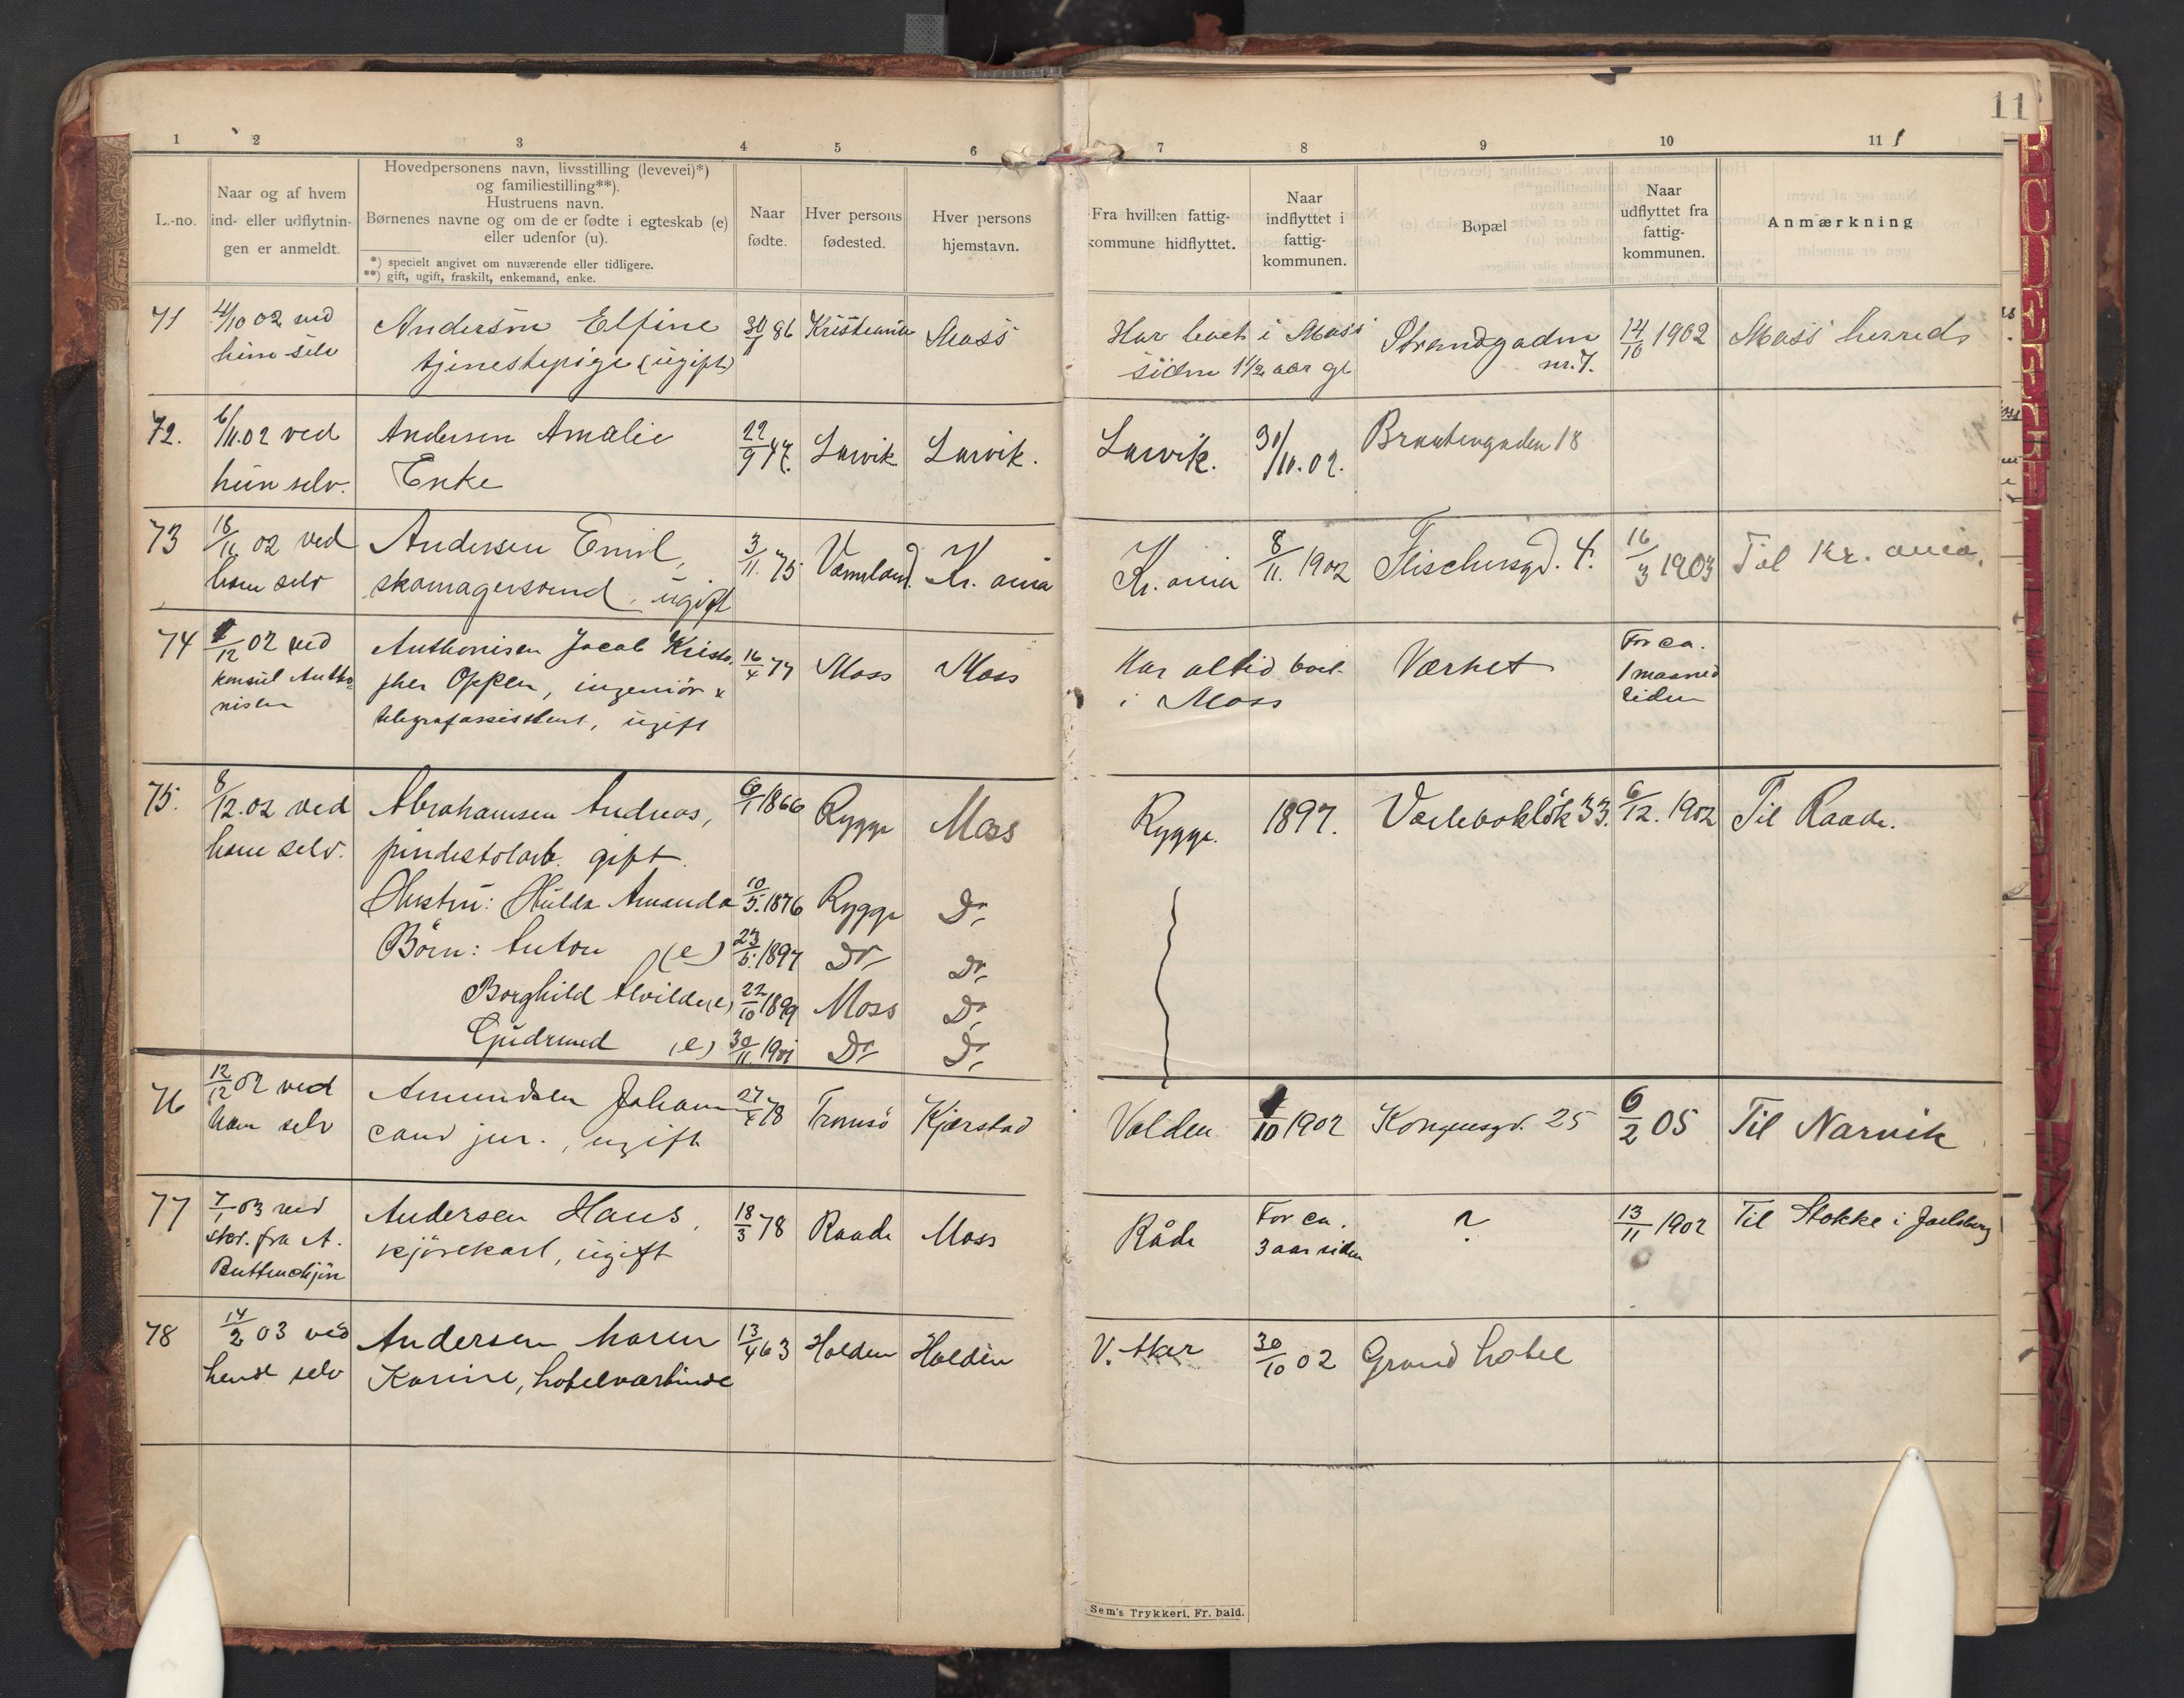 11
1 2 3 4 5 6 7 8 9 10 11
L.-no.
Naar og af hvem
ind- eller udflytnin-
gen er anmeldt.
Hovedpersonens navn, livsstilling (levevei)*)
og familiestilling**).
Hustruens navn.
Børnenes navne og om de er fødte i egteskab (e)
eller udenfor (u).
*) specielt angivet om nuværende eller tidligere.
**) gift, ugift, fraskilt, enkemand, enke.
Naar
fødte.
Hver persons
fødested.
Hver persons
hjemstavn.
Fra hvilken fattig-
kommune hidflyttet.
Naar
indflyttet i
fattig-
kommunen.
Bopæl
Naar
udflyttet fra
fattig-
kommunen.
Anmærkning
71 /10 02 ved Andersen Elfine 86 Kristiania Moss Har boet i Moss Strandgaden 14/10 1902 Moss herred
hun selv tjenestepige (ugift) siden 1 1/2 aar gl nr. 7.
72. 6/11.02 ved Andersen Amalie 22/9 47. Larvik Larvik. Larvik. 31/10.02. 18
hun selv. Enke
73 18/11 02 ved Andersen Emil, 3/11. 75 Vermland Kr. ania Kr. ania 8/11. 1902 Fischersgd. 4. 16/3 1903 Til Kr. ania.
ham selv skomagersvend, ugift
74 /12 02 ved Anthonisen Jacob Kristo- 16/4 77 Moss Moss Har altid boet Værket For ca.
konsul Antho- pher Oppen, ingeniør & i Moss 1 maaned
nisen telegrafassistent, ugift siden
75. 8/12.02 ved Abrahamsen Andreas, 6/1 1866 Rygge Moss Rygge. 1897. 33. 6/12. 1902 Til Raade.
ham selv. pindestolarb. gift.
Hustru: Hulda Amanda 10/5. 1876 Rygge Do
Børn: Anton (e) 23/5. 1897 Do Do
Borghild Alvilde (e) 22/10 1899 Moss Do
Gudrund (e) 30/11 1901 Do Do
76 12/12 02 ved Amundsen Johan 27/4 78 Tromsö Kjærstad Volden /10 1902 Kongensgd. 25 6/2 05 Til Narvik
ham selv cand jur., ugift
77 7/1 03 ved Andersen Hans, 18/3 78 Raade Moss Råde For ca. ? 13/11 1902 Til Stokke i Jarlsberg
skr. fra A. kjörekarl, ugift 3 aar siden
78 14/2 03 ved Andersen Maren 13/4 63 Halden Halden V. Aker 30/10 02 Grand hotel
hende selv Karine, hotelværtinde
Sem's Trykkeri, Fr. hald.